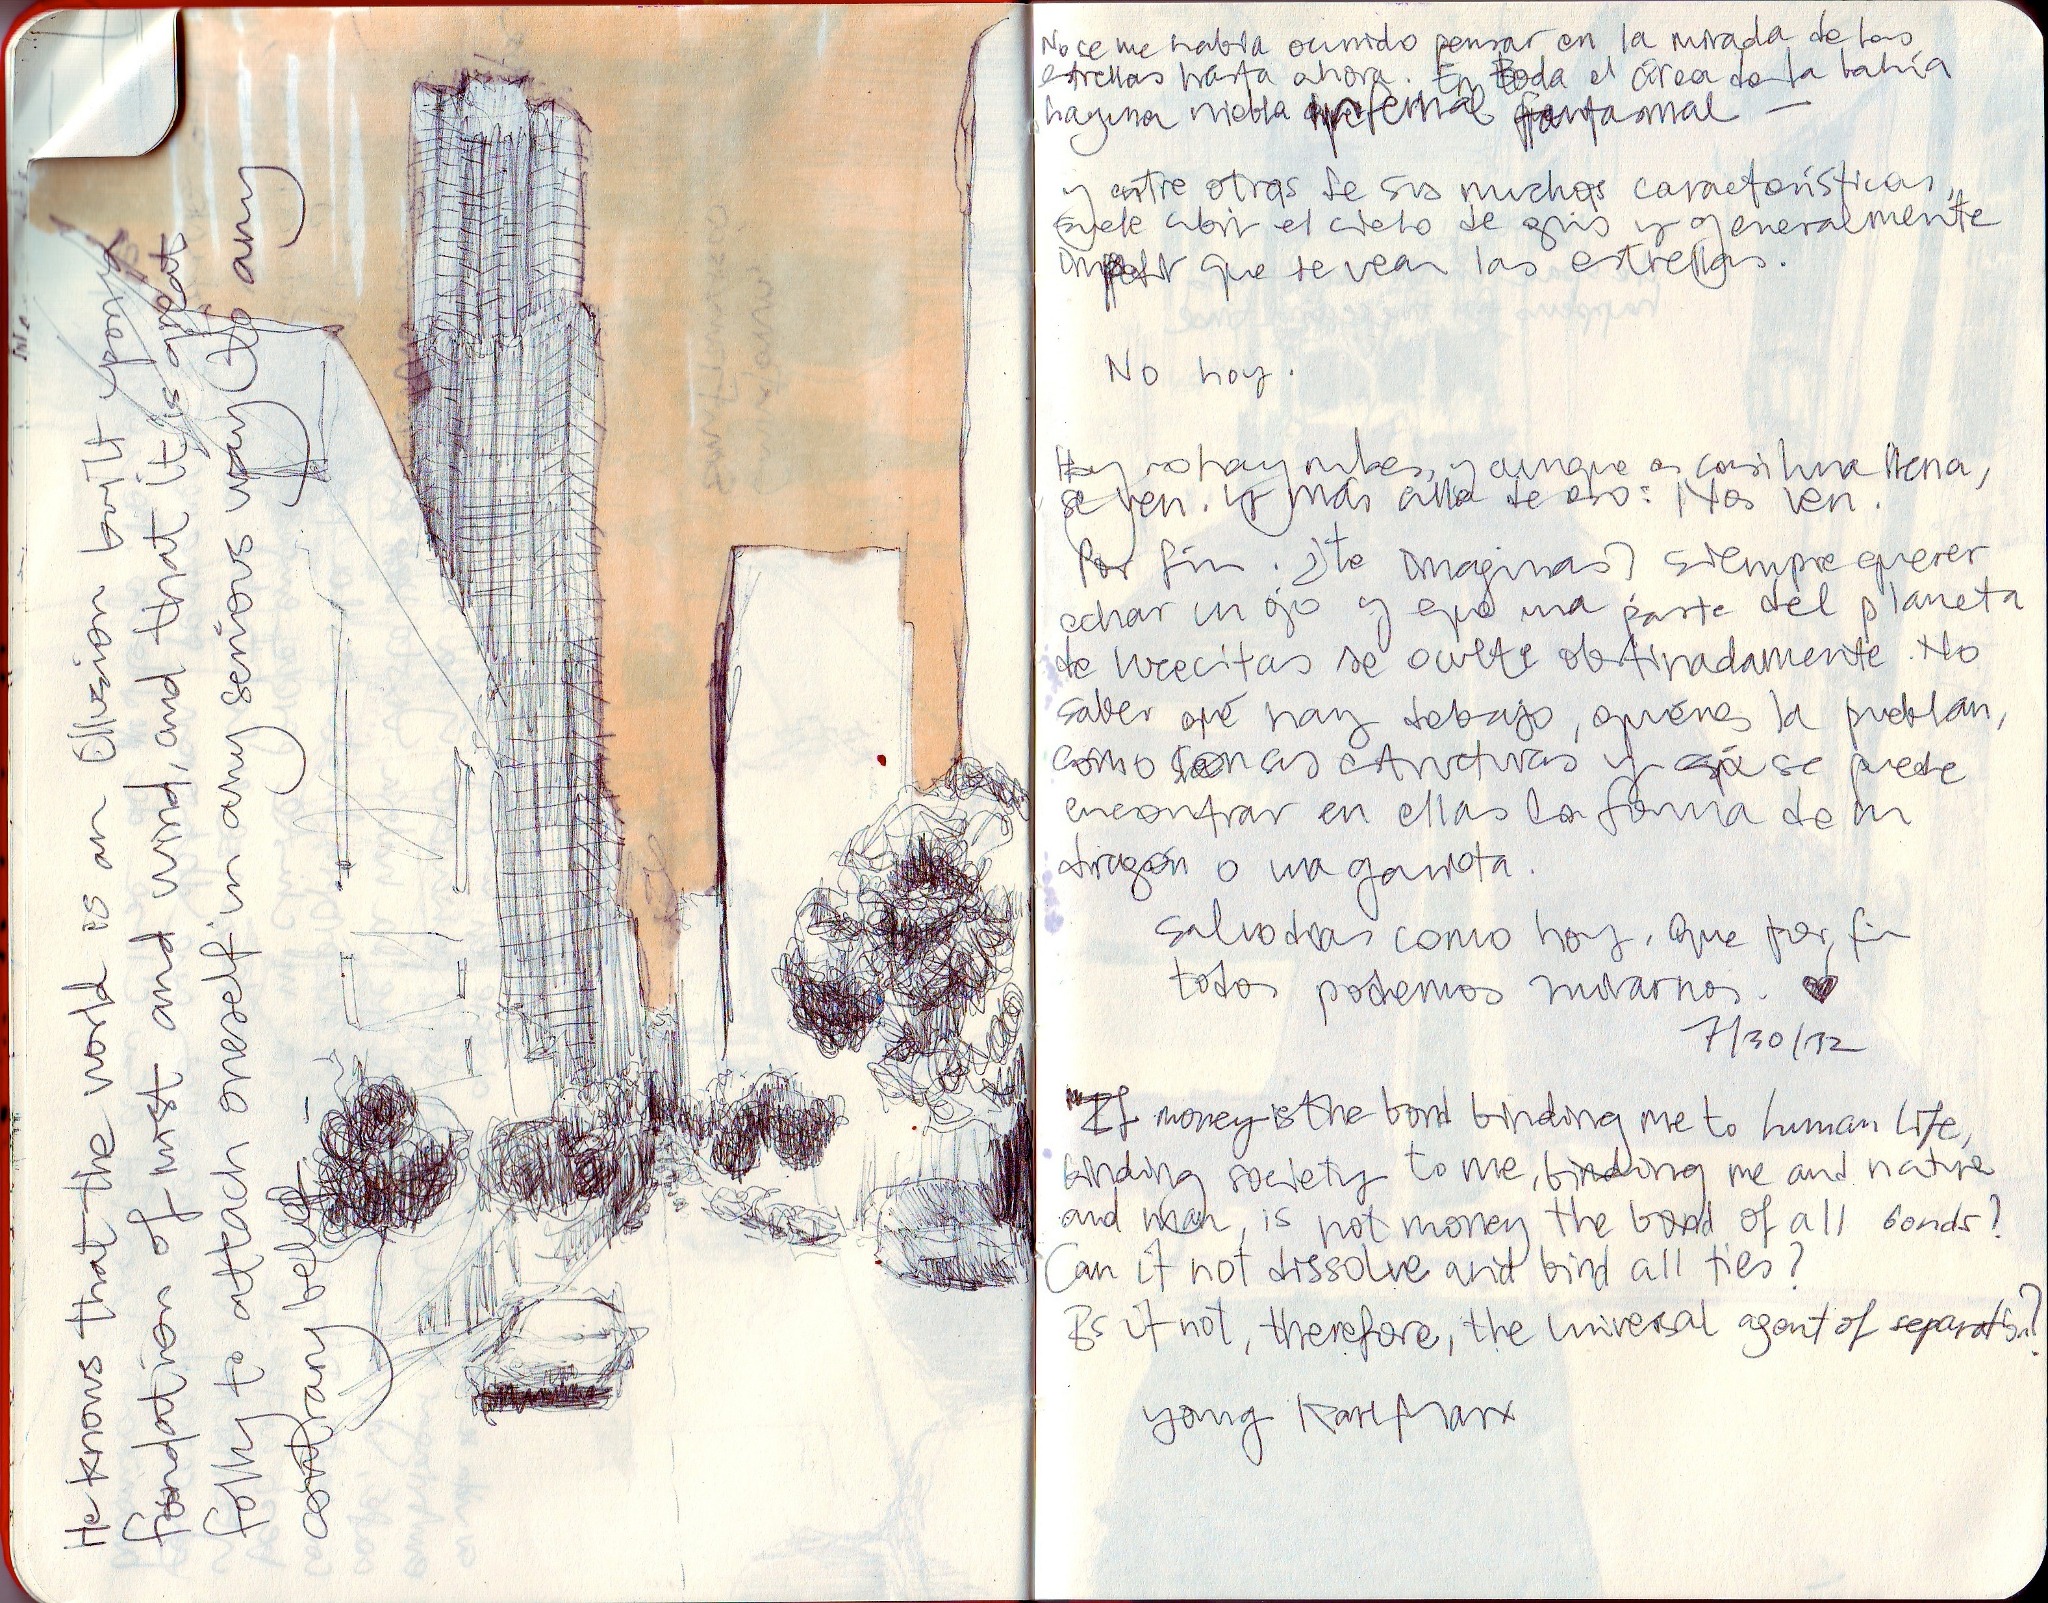 He knows that the world is an illusion built upon a
foundation of mist and wind, and that it is great
folly to attach oneself in any serious way (to any
contrary belief –
No se me había ocurrido pensar en la mirada de las
estrellas hasta ahora. En toda el área de la bahía
hay una niebla infernal fantasmal —
y entre otras de sus muchas características,
suele cubrir el cielo de gris y generalmente
impedir que se vean las estrellas.
No hoy.
Hoy no hay nubes, y aunque es casi luna llena,
se ven. Y más allá de eso: Nos ven.
Por fin. ¿te imaginas? siempre querer
echar un ojo y que una parte del planeta
de lucecitas se oculte obstinadamente. No
saber qué hay debajo, quiénes la pueblan,
como son sus estructuras y si se puede
encontrar en ellas la forma de un
dragón o una gaviota.
Salvo días como hoy, que por fin
todos podemos mirarnos. ♥
7/30/12
"If money is the bond binding me to human life,
binding society to me, binding me and nature
and man, is not money the bond of all bonds?
Can it not dissolve and bind all ties?
Is it not, therefore, the universal agent of separation?
young Karl Marx